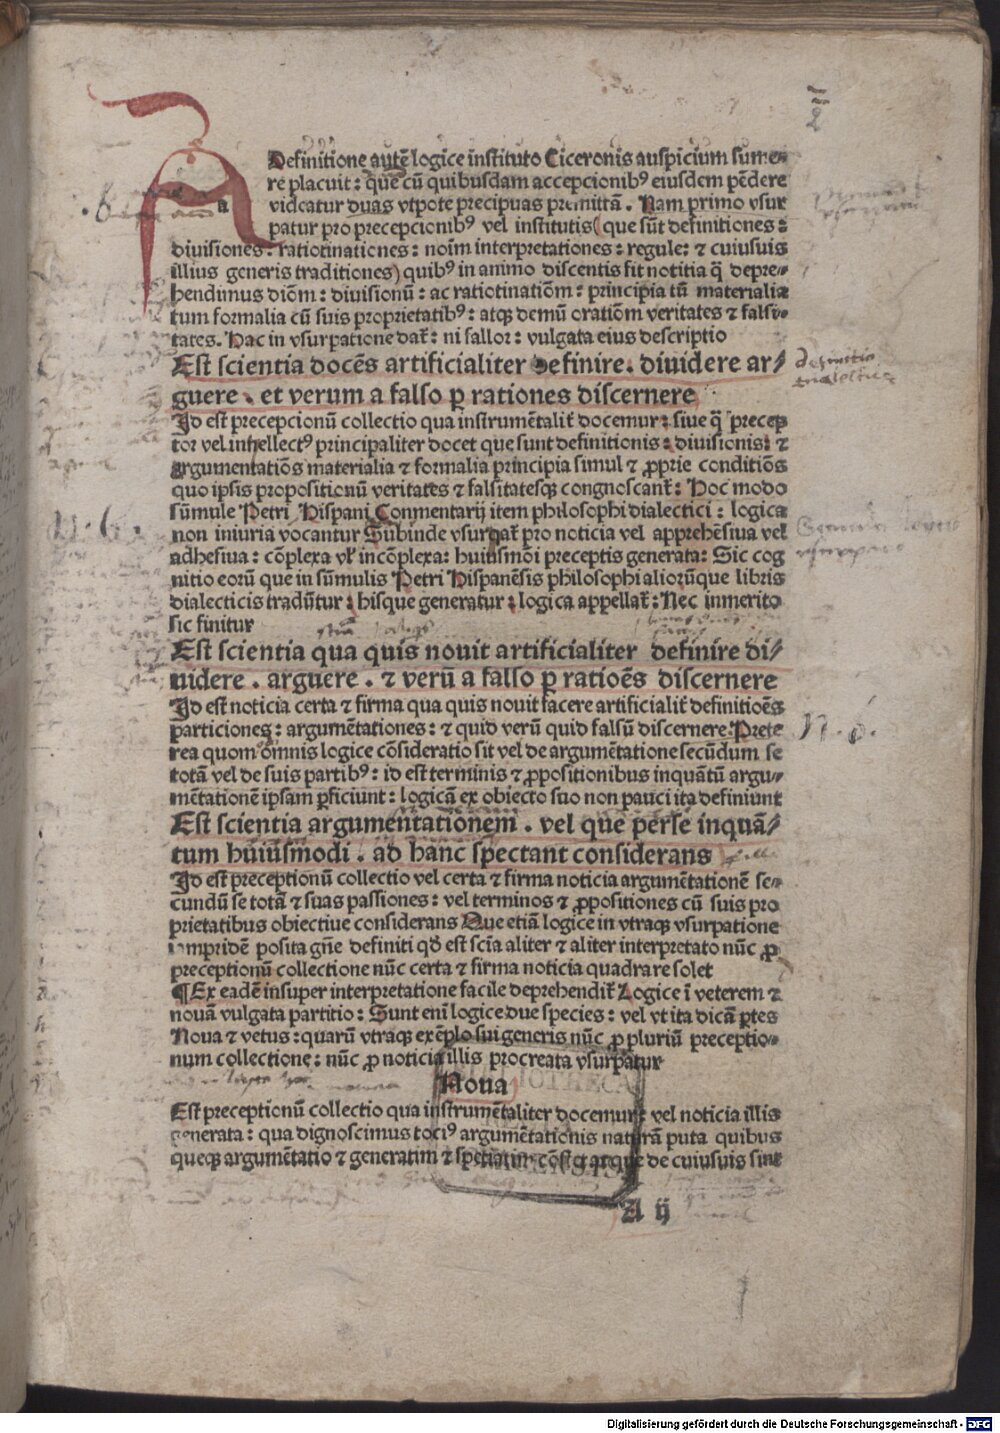 a Definitione autē logice instituto Ciceronis auspicium sume⸗
re placuit: que cū quibusdam accepcionibꝰ eiusdem pēdere
videatur duas vtpote precipuas premittā. Nam primo vsur
patur pro precepcionibꝰ vel institutis (que sūt definitiones:
diuisiones: ratiotinationes: noīm interpretationes: regule: ⁊ cuiusuis
illius generis traditiones) quibꝰ in animo discentis fit notitia q̄ depre⸗
hendimus diōm: diuisionū: ac ratiotinatiōm: principia tū materialia
tum formalia cū suis proprietatibꝰ: atqꝫ demū oratiōm veritates ⁊ falsi⸗
tates. Hac in vsurpatione dat̄: ni fallor: vulgata eius descriptio
Est scientia docēs artificialiter definire. diuidere ar⸗
guere. et verum a falso ꝑ rationes discernere
Id est precepcionū collectio qua instrumētalit̄ docemur: siue q̄ precep
tor vel intellectꝰ principaliter docet que sunt definitionis: diuisionis: ⁊
argumentatiōs materialia ⁊ formalia principia simul ⁊ ꝓprie conditiōs
quo ipsis propositionū veritates ⁊ falsitatesqꝫ congnoscant̄: Hoc modo
sūmule Petri Hispani Conmentarij item philosophi dialectici: logica
non iniuria vocantur Subinde vsurpat̄ pro noticia vel apprehēsiua vel
adhesiua: cōplexa vl̓ incōplexa: huiusmōi preceptis generata: Sic cog
nitio eorū que in sūmulis Petri Hispanēsis philosophi aliorūque libris
dialecticis tradūtur: hisque generatur: logica appellat̄: Nec inmerito
sic finitur
Est scientia qua quis nouit artificialiter definire di⸗
uidere. arguere. ⁊ verū a falso ꝑ ratioēs discernere
Id est noticia certa ⁊ firma qua quis nouit facere artificialit̄ definitioēs
particiones: argumētationes: ⁊ quid verū quid falsū discernere. Prete
rea quom omnis logice cōsideratio sit vel de argumētatione secūdum se
totā vel de suis partibꝰ: id est terminis ⁊ ꝓpositionibus inquātū argu⸗
mētationē ipsam ꝑficiunt: logicā ex obiecto suo non pauci ita definiunt
Est scientia argumentationem. vel que perse inquā⸗
tum huiusmodi. ad hanc spectant considerans
Id est preceptionū collectio vel certa ⁊ firma noticia argumētationē se⸗
cundū se totā ⁊ suas passiones: vel terminos ⁊ ꝓpositiones cū suis pro
prietatibus obiectiue considerans Que etiā logice in vtraqꝫ vsurpatione
iampridē posita gn̄e definiti qd̓ est scīa aliter ⁊ aliter interpretato nūc ꝓ
preceptionū collectione nūc certa ⁊ firma noticia quadrare solet
¶Ex eadē insuper interpretatione facile deprehendit̄ Logice ī veterem ⁊
nouā vulgata partitio: Sunt enī logice due species: vel vt ita dicā ꝑtes
Noua ⁊ vetus: quarū vtraqꝫ exēplo sui generis nūc ꝓ pluriū preceptio⸗
num collectione: nūc ꝓ noticia illis procreata vsurpatur
Noua
Est preceptionū collectio qua instrumētaliter docemur: vel noticia illis
generata: qua dignoscimus tociꝰ argumētationis naturā puta quibus
queqꝫ argumētatio ⁊ generatim ⁊ de cuiusuis sint
A ij
Digitalisierung gefördert durch die Deutsche Forschungsgemeinschaft - DFG